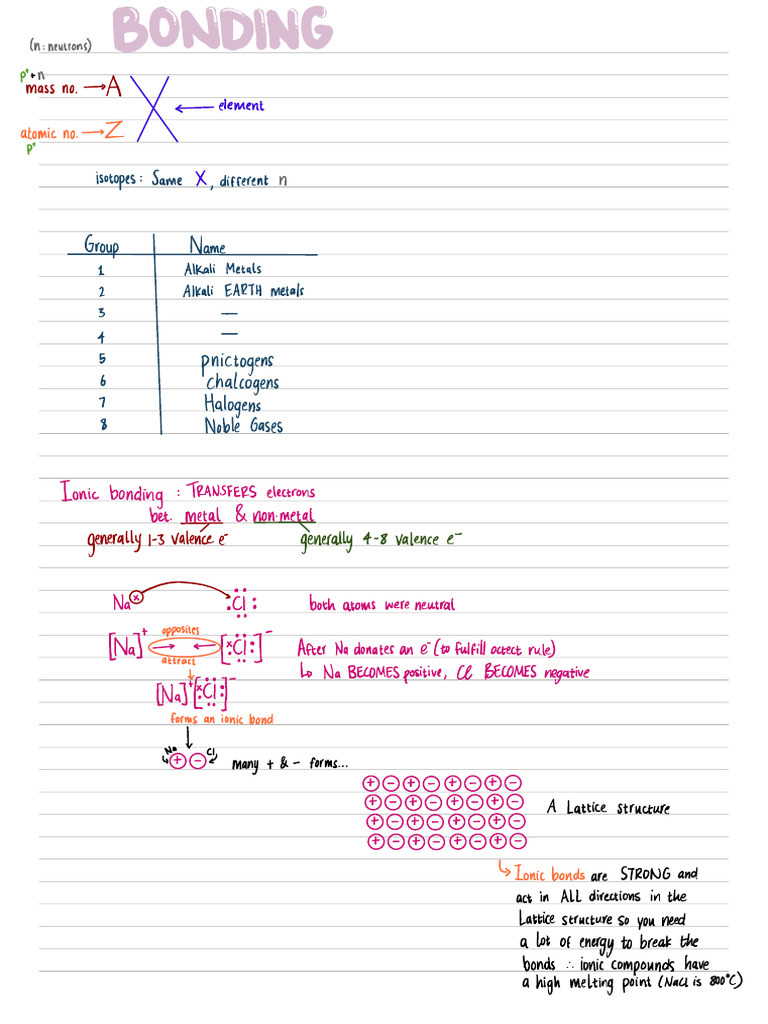 BONDING
(n: neutrons)
p⁺ + n
mass no. → A
X ← element
atomic no. → Z
p⁺
isotopes: Same X, different n
Group Name
1 Alkali Metals
2 Alkali EARTH metals
3 —
4 —
5 pnictogens
6 chalcogens
7 Halogens
8 Noble Gases
Ionic bonding : TRANSFERS electrons
bet. metal & non-metal
generally 1-3 valence e⁻ generally 4-8 valence e⁻
Na x Cl both atoms were neutral
opposites
[Na]⁺ → ← [x Cl]⁻ After Na donates an e⁻ (to fulfill octect rule)
attract ↳ Na BECOMES positive, Cl BECOMES negative
[Na]⁺ [x Cl]⁻
forms an ionic bond
Na Cl
+ − many + & - forms...
+ − + − + − + −
+ − + − + − + − A Lattice structure
+ − + − + − + −
+ − + − + − + −
↳ Ionic bonds are STRONG and
act in ALL directions in the
Lattice structure so you need
a lot of energy to break the
bonds ∴ ionic compounds have
a high melting point (NaCl is 800°C)